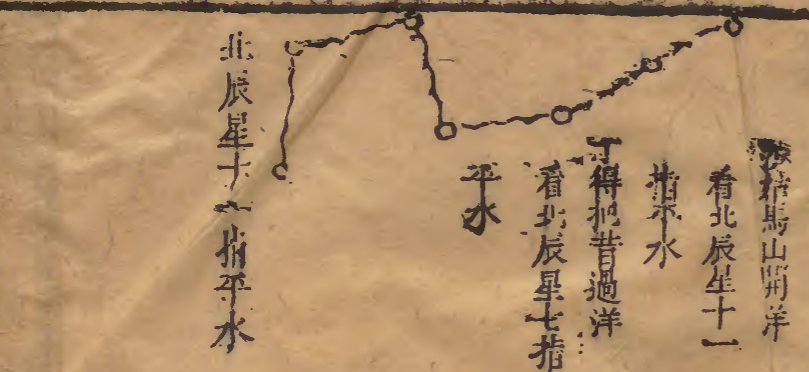 馬山開洋
看北辰星十一
指平水
丁得把昔過洋
看北辰星七指
平水
北辰星十一指平水